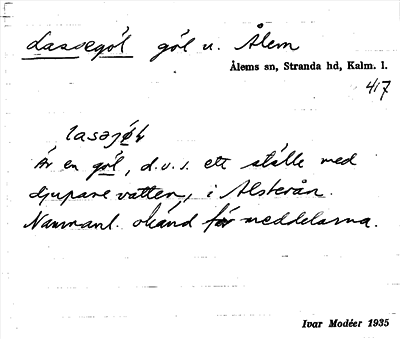 Lassegöl göl u. Ålem
Ålems sn, Stranda hd, Kalm. l.
417
Är en göl, d.v.s. ett ställe med
djupare vatten, i Alsterån.
Namnanl. okänd för meddelarna.
Ivar Modéer 1935